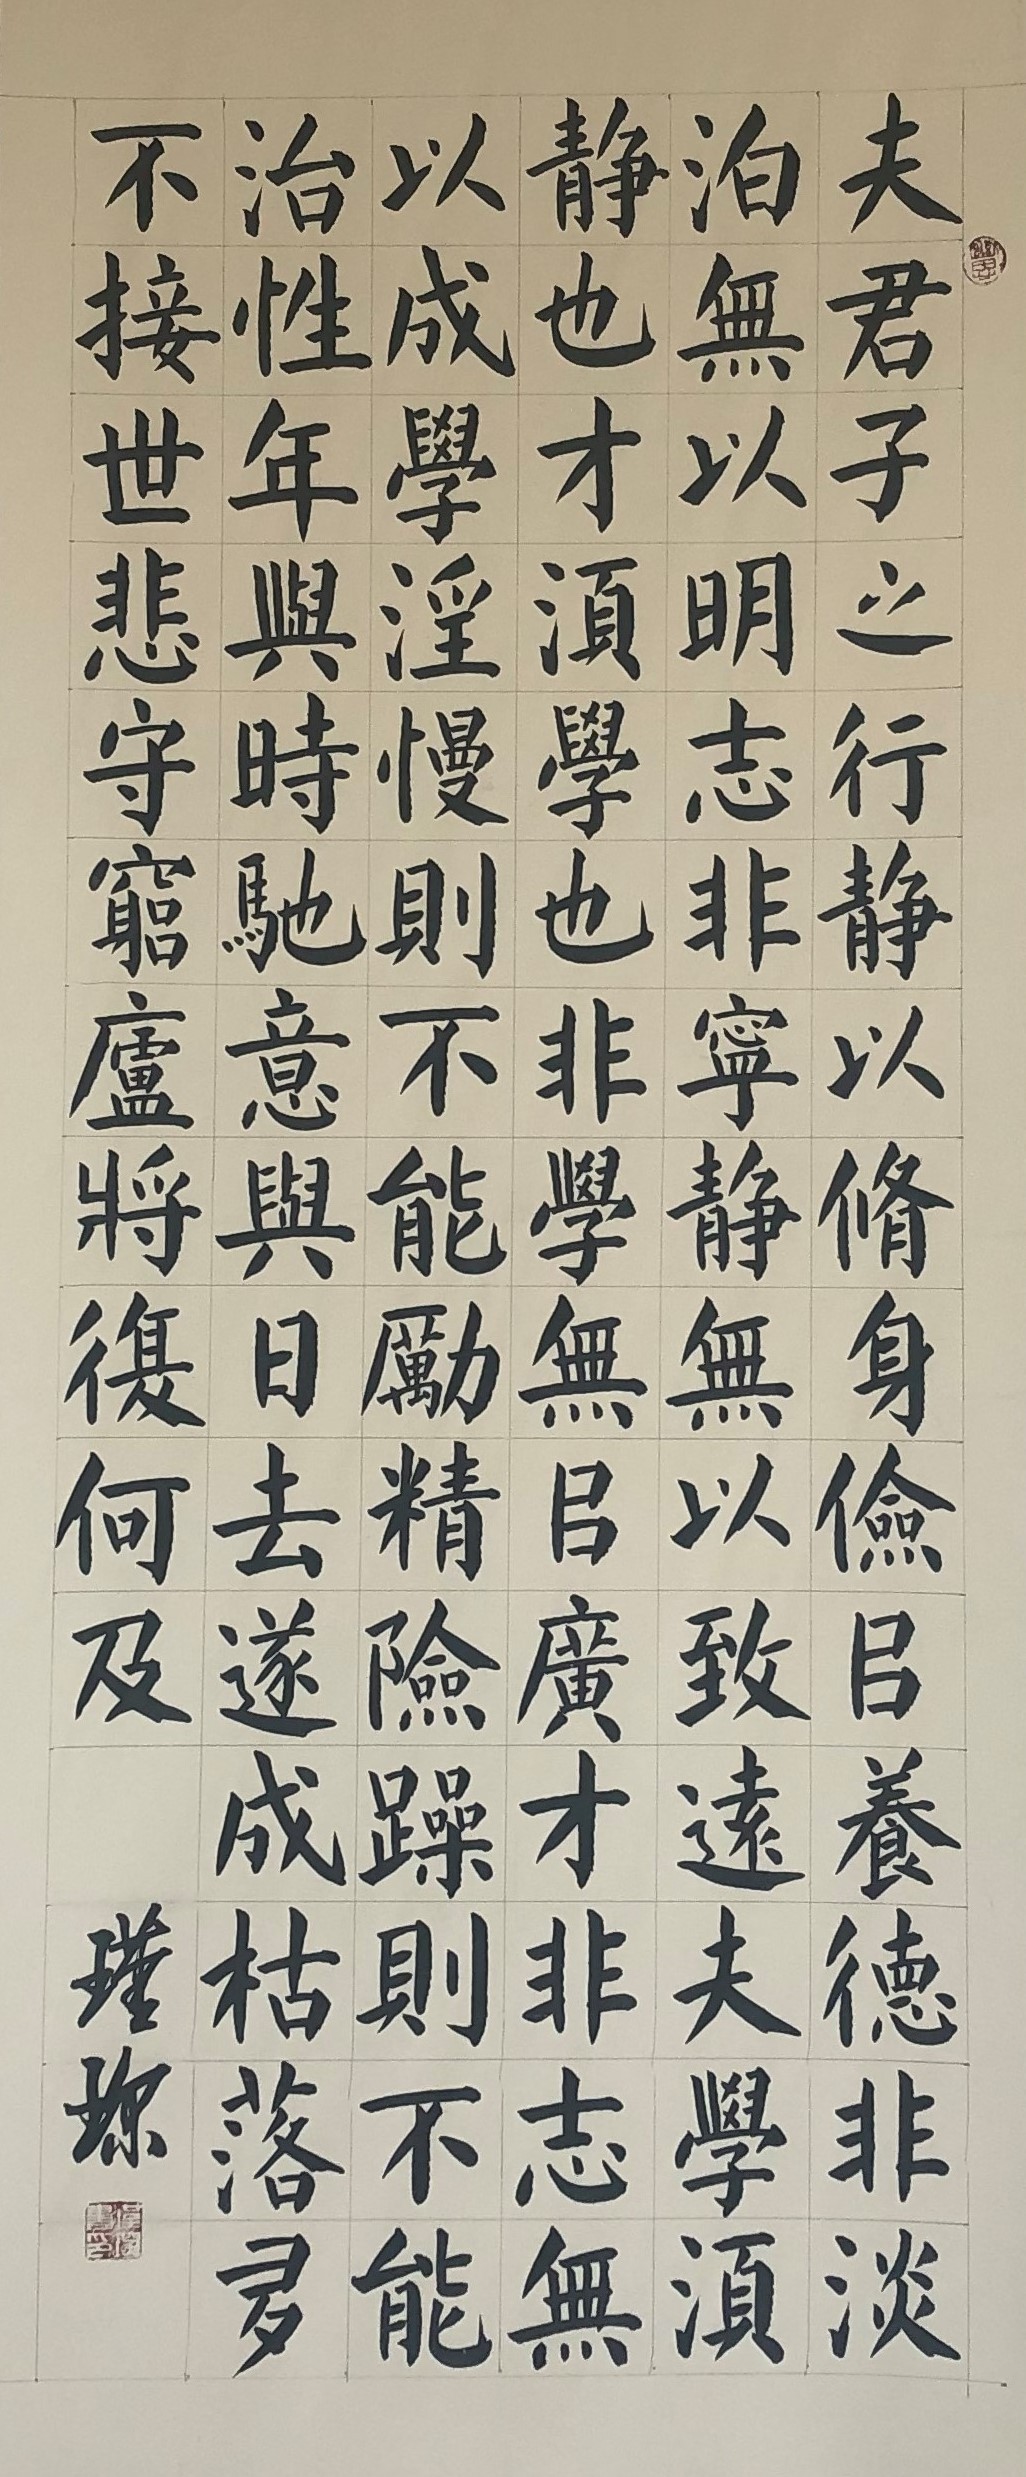 夫君子之行静以脩身儉㠯養德非淡
泊無以明志非寧静無以致遠夫學須
静也才須學也非學無㠯廣才非志無
以成學淫慢則不能勵精險躁則不能
治性年與時馳意與日去遂成枯落多
不接世悲守窮廬將復何及
瑾琛